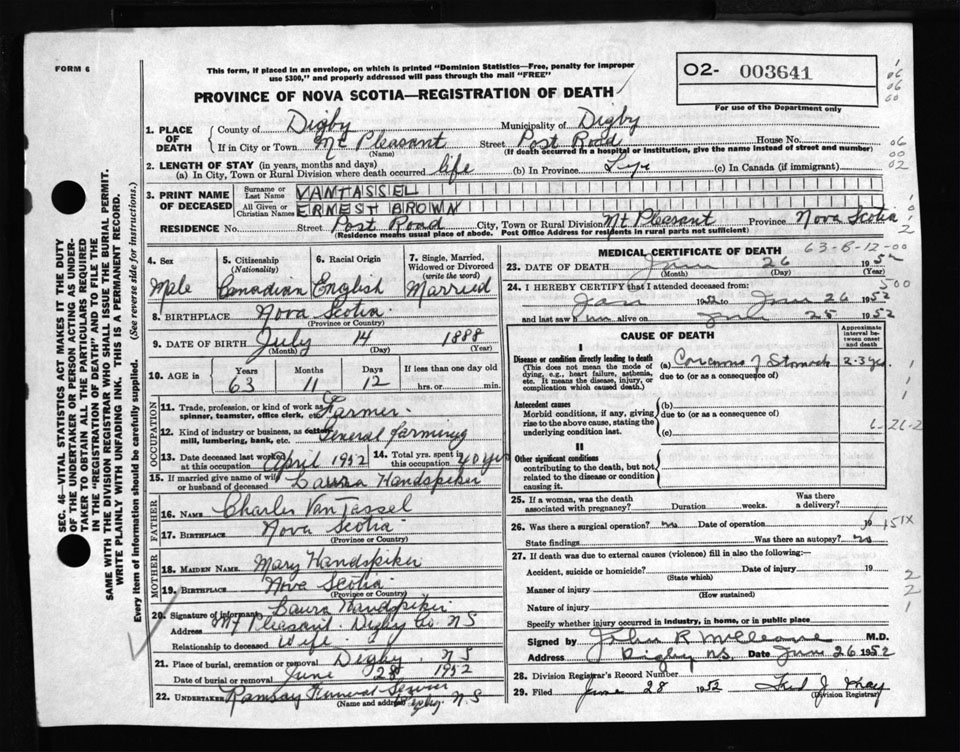 FORM 6
This form, if placed in an envelope, on which is printed "Dominion Statistics—Free, penalty for improper
use $300," and properly addressed will pass through the mail "FREE"
PROVINCE OF NOVA SCOTIA—REGISTRATION OF DEATH
O2- 003641
For use of the Department only
1. PLACE OF DEATH
County of Digby Municipality of Digby
If in City or Town Mt Pleasant Street Post Road House No.
(Name) (If death occurred in a hospital or institution, give the name instead of street and number)
2. LENGTH OF STAY (in years, months and days)
(a) In City, Town or Rural Division where death occurred life (b) In Province Life (c) In Canada (if immigrant)
3. PRINT NAME OF DECEASED
Surname or Last Name VANTASSEL
All Given or Christian Names ERNEST BROWN
RESIDENCE No. Street Post Road City, Town or Rural Division Mt Pleasant Province Nova Scotia
(Residence means usual place of abode. Post Office Address for residents in rural parts not sufficient)
4. Sex Male
5. Citizenship (Nationality) Canadian
6. Racial Origin English
7. Single, Married, Widowed or Divorced (write the word) Married
8. BIRTHPLACE Nova Scotia
(Province or Country)
9. DATE OF BIRTH July 14 1888
(Month) (Day) (Year)
10. AGE in Years Months Days If less than one day old
63 11 12 hrs. or min.
OCCUPATION
11. Trade, profession, or kind of work as spinner, teamster, office clerk, etc. Farmer.
12. Kind of industry or business, as cotton mill, lumbering, bank, etc. General farming
13. Date deceased last worked at this occupation April 1952
14. Total yrs. spent in this occupation 40 yrs
15. If married give name of wife or husband of deceased Laura Handspiker
FATHER
16. NAME Charles Van Tassel
17. BIRTHPLACE Nova Scotia
(Province or Country)
MOTHER
18. MAIDEN NAME Mary Handspiker
19. BIRTHPLACE Nova Scotia
(Province or Country)
20. Signature of informant Laura Handspiker
Address Mt Pleasant. Digby Co. N S
Relationship to deceased wife
21. Place of burial, cremation or removal Digby N S
Date of burial or removal June 28 1952
22. UNDERTAKER Ramsay Funeral Service
(Name and address) Digby N S
MEDICAL CERTIFICATE OF DEATH 63-6-12-00
23. DATE OF DEATH June 26 1952
(Month) (Day) (Year)
24. I HEREBY CERTIFY that I attended deceased from: 500
Jan 1952 to June 26 1952
and last saw him alive on June 25 1952
CAUSE OF DEATH
Approximate interval between onset and death
I
Disease or condition directly leading to death
(This does not mean the mode of dying, e.g., heart failure, asthenia, etc. It means the disease, injury, or complication which caused death.)
(a) Carcinoma of Stomach 2-3 yrs.
due to (or as a consequence of)
Antecedent causes
Morbid conditions, if any, giving rise to the above cause, stating the underlying condition last.
(b)
due to (or as a consequence of)
(c)
II
Other significant conditions
contributing to the death, but not related to the disease or condition causing it.
25. If a woman, was the death associated with pregnancy? Duration weeks. Was there a delivery?
26. Was there a surgical operation? no Date of operation 19 151X
State findings Was there an autopsy? no
27. If death was due to external causes (violence) fill in also the following:—
Accident, suicide or homicide? Date of injury 19
(State which)
Manner of injury
(How sustained)
Nature of injury
Specify whether injury occurred in industry, in home, or in public place
Signed by M.D.
Address Digby N.S. Date June 26 1952
28. Division Registrar's Record Number
29. Filed June 28 1952
(Division Registrar)
SEC. 46—VITAL STATISTICS ACT MAKES IT THE DUTY
OF THE UNDERTAKER OR PERSON ACTING AS UNDER-
TAKER TO OBTAIN ALL THE PARTICULARS REQUIRED
IN THE "REGISTRATION OF DEATH" AND TO FILE THE
SAME WITH THE DIVISION REGISTRAR WHO SHALL ISSUE THE BURIAL PERMIT.
WRITE PLAINLY WITH UNFADING INK. THIS IS A PERMANENT RECORD.
Every item of information should be carefully supplied. (See reverse side for instructions.)